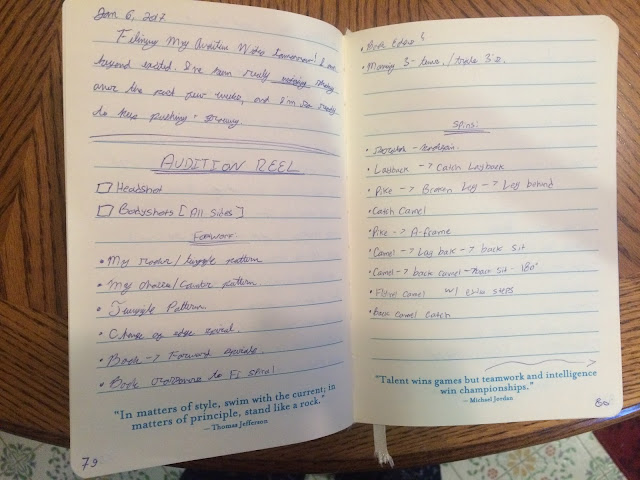 Jan 6, 2017
Filming My Audition Video tomorrow! I am
beyond excited. I've been really
over the past few weeks, and I'm so ready
to keep pushing + growing.
AUDITION REEL
Headshot
Bodyshots [All sides]
Footwork:
• My rocker/ pattern
• My choctaw/counter pattern
• Twizzle Pattern
• Change of edge
• Back -> Forward
• Back to FI spiral
"In matters of style, swim with the current; in
matters of principle, stand like a rock."
— Thomas Jefferson
79
• Back Edges
• Moving 3-turns/triple 3's.
Spins:
•
• Layback -> Catch Layback
• Pike -> Broken Leg -> Leg behind
• Catch Camel
• Pike -> A-frame
• Camel -> Lay back -> back sit
• Camel -> back camel -> back sit 180°
• Flying camel w/ steps
• back camel catch
"Talent wins games but teamwork and intelligence
win championships."
— Michael Jordan
80